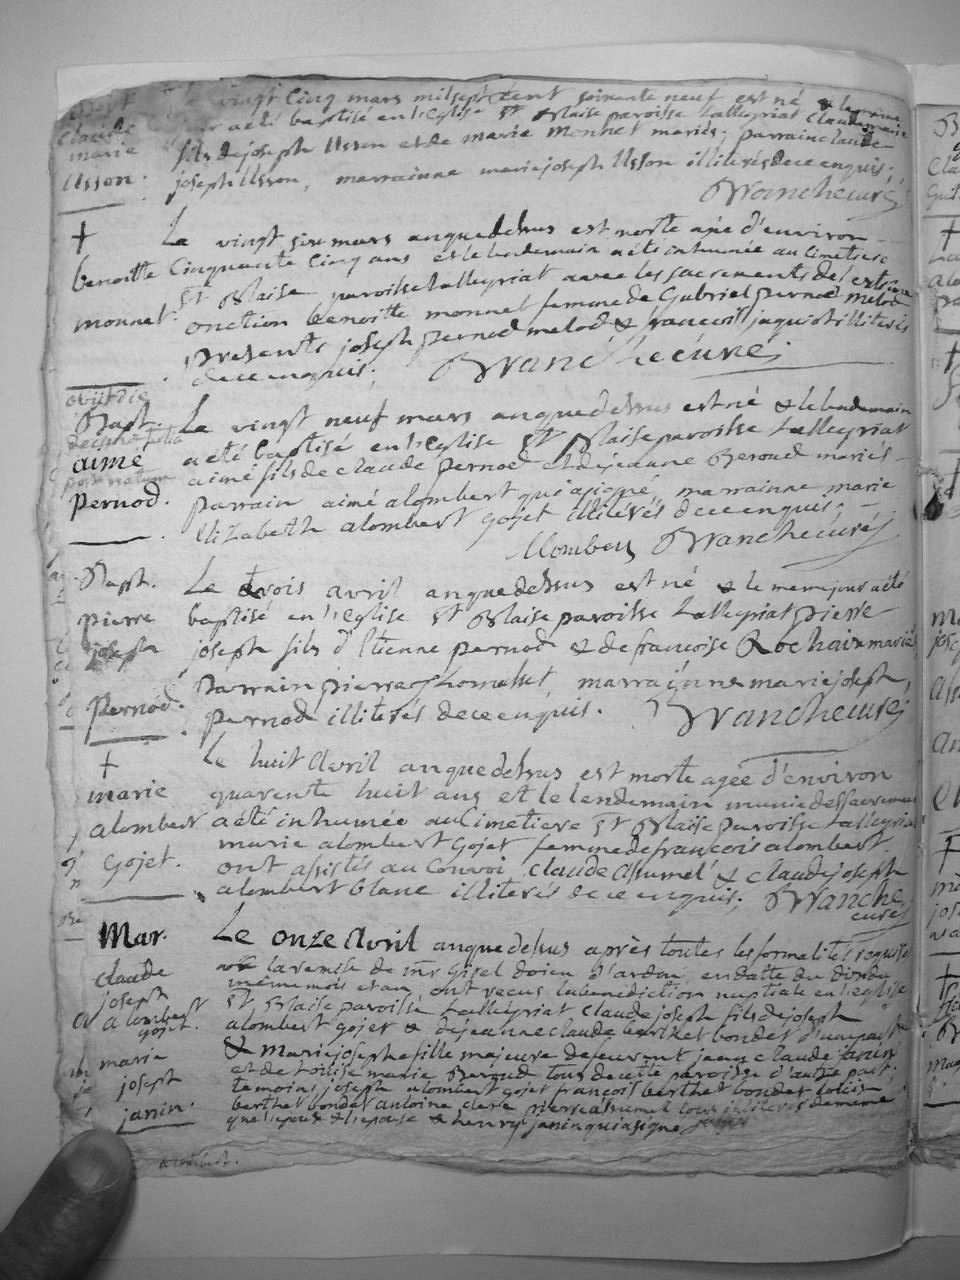 Bapt
Claude
marie
Usson.
vingt cinq mars mil sept cent soixante neuf est né & le meme
jour a été baptisé en l'eglise St Blaise paroisse tallegriat Claude marie
fils de joseph Usson et de marie monnet mariés; parrain claude
joseph Usson, marrainne marie joseph Usson illiterés de ce enquis;
Wancheuré
†
benoitte
monnet
Le vingt six mars an que dessus est morte agée d'environ
Cinquante Cinq ans et le lendemain a été inhumée au Cimetiere
St Blaise paroisse tallegriat avec les sacrements de l'extreme
onction benoitte monnet femme de Gabriel pernod melod
presents joseph pernod melod & francois jaquiot illiterés
de ce enquis;
obiit die
Bapt.
aimé
post natum
pernod.
Le vingt neuf mars an que dessus est né & le lendemain
a été baptisé en l'eglise St Blaise paroisse tallegriat
aimé fils de claude pernod et de jeanne Beroud mariés
parrain aimé alombert qui a signé, marrainne marie
Elizabeth alombert gojet illiterés de ce enquis;
Alombert
Bapt.
pierre
joseph
pernod.
Le trois avril an que dessus est né & le meme jour a été
baptisé en l'eglise St Blaise paroisse tallegriat pierre
joseph fils d'Etienne pernod & de francoise Rochaix mariés
parrain pierre, marrainne marie joseph
pernod illiterés de ce enquis.
†
marie
alombert
gojet.
Le huit Avril an que dessus est morte agée d'environ
quarente huit ans et le lendemain munie des sacremens
a été inhumée au Cimetiere St Blaise paroisse tallegriat
marie alombert gojet femme de françois alombert
ont assistés au Convoi Claude Assumel & claude joseph
alombert blanc illiterés de ce enquis;
Mar.
claude
joseph
alombert
gojet.
marie
joseph
janin.
Le onze Avril an que dessus après toutes les formalités requises
la remise de mr Gisel doien d'ardon, en datte du dix du
même mois et an, ont recus la bénédiction nuptiale en l'eglise
St Blaise paroisse tallegriat Claude joseph fils de joseph
alombert gojet & de jeanne claude berthet bondet d'une part
& marie josephe fille majeure de feu vent jean claude janin
et de marie Beroud tous de cette paroisse d'autre part.
temoins joseph alombert gojet françois berthet bondet
berthet bondet antoine pierre assumel tous illiterés de meme
que l'epoux & l'epouse & henry janin qui a signé